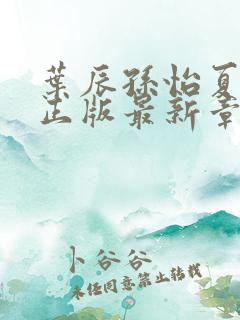 葉辰孫怡夏
正版最新章
卜谷谷
未经同意禁止转载